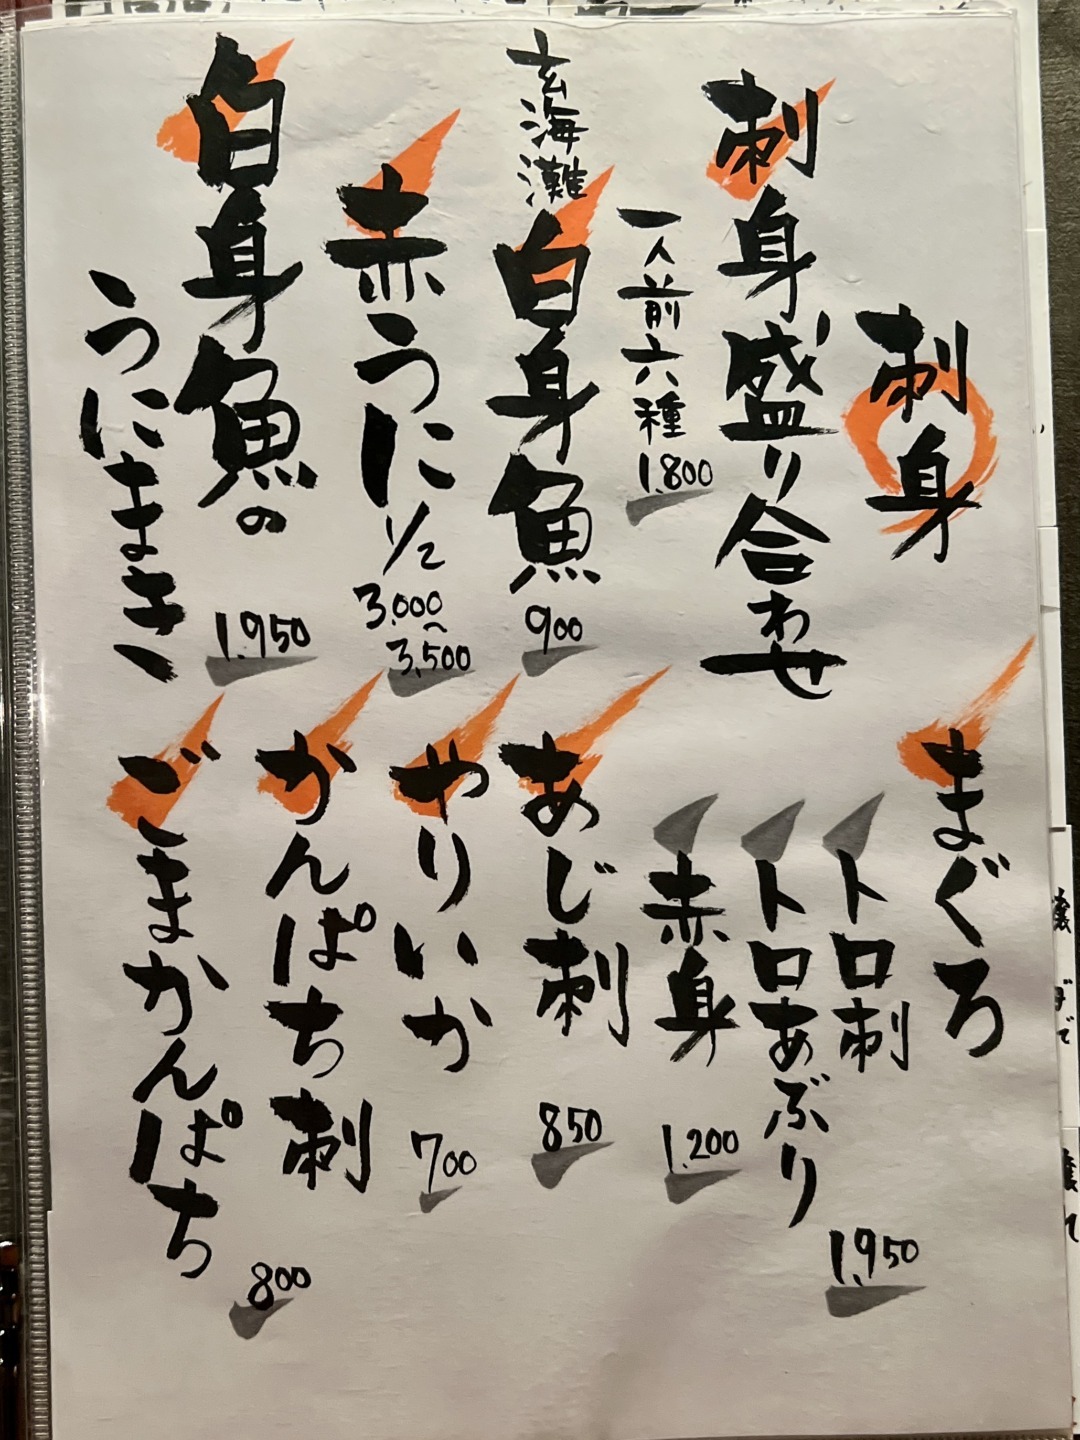 刺身
刺身盛り合わせ
一人前六種
1,800
玄海灘
白身魚
900
赤うに1/2
3,000
〜
3,500
白身魚の
うにまき
1,950
まぐろ
トロ刺
トロあぶり
1,950
赤身
1,200
あじ刺
850
やりいか
700
かんぱち刺
ごまかんぱち
800